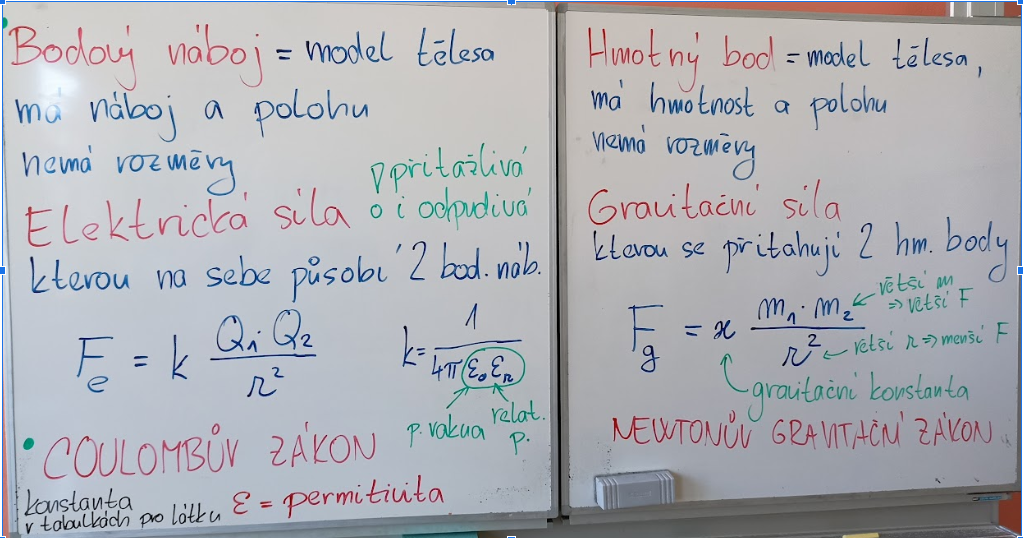 Bodový náboj = model tělesa
má náboj a polohu
nemá rozměry
přitažlivá
o i odpudivá
Elektrická síla
kterou na sebe působí 2 bod. náb.
Fe = k Q1 Q2 / r²
k = 1 / 4π ε0 εr
p. vakua
relat. p.
COULOMBŮV ZÁKON
konstanta
v tabulkách pro látku
ε = permitivita
Hmotný bod = model tělesa,
má hmotnost a polohu
nemá rozměry
Gravitační síla
kterou se přitahují 2 hm. body
Fg = ϰ m1 · m2 / r²
větší m
⇒ větší F
větší r ⇒ menší F
gravitační konstanta
NEWTONŮV GRAVITAČNÍ ZÁKON